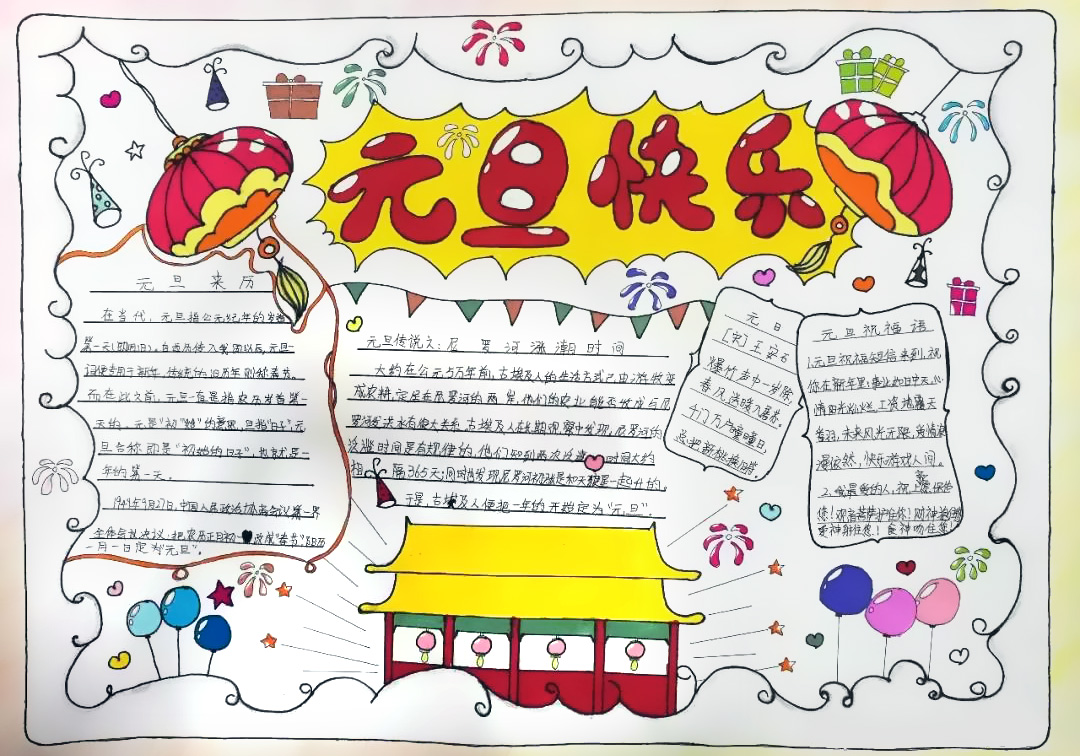 元旦快乐
元旦来历
在当代，元旦指公元纪年的岁首
第一天(即阳旧)。自西历传入我国以后,元旦一
词便专用于新年，传统的旧历年则称春节。
而在此之前，元旦一直是指农历岁首第一
天的。元是"初""始"的意思，旦指"日子",元
旦合称即是"初始的日子"，也就是一
年的第一天。
1949年9月27日，中国人民政治协商会议第一界
全体会议决议：把农历正月初一改成"春节"阳历
一月一日定为"元旦"。
元旦传说之：尼罗河涨潮时间
大约在公元5万年前,古埃及人的生活方式已由游牧变
成农耕,定居在尼罗河的两岸,他们的农业能否收成与尼
罗河发洪水有偌大关系,古埃及人在长期观察中发现,尼罗河的
泛滥时间是有规律的,他们即到两次泛滥时间大约
相隔365天；同时也发现尼罗河初涨是和天狼星一起升的。
于是,古埃及人便把一年的开始定为"元旦"
元日
[宋]王安石
爆竹声中一岁除
春风送暖入屠苏。
千门万户曈曈日,
总把新桃换旧符
元旦祝福语
1.元旦祝福短信来到,祝
你在新年里:事业如日中天,心
情阳光灿烂,工资地覆天
翻,未来风光无限,爱情浪
漫依然,快乐游戏人间。
2.我最爱的人，祝上帝保佑
您!观音菩萨护住你!财神
爱神射住您!食神吻住您!